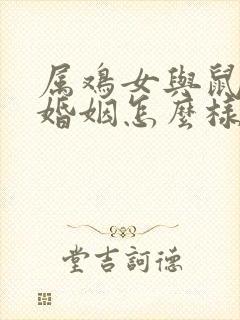 属鸡女與鼠
婚姻怎麼樣
堂吉訶德